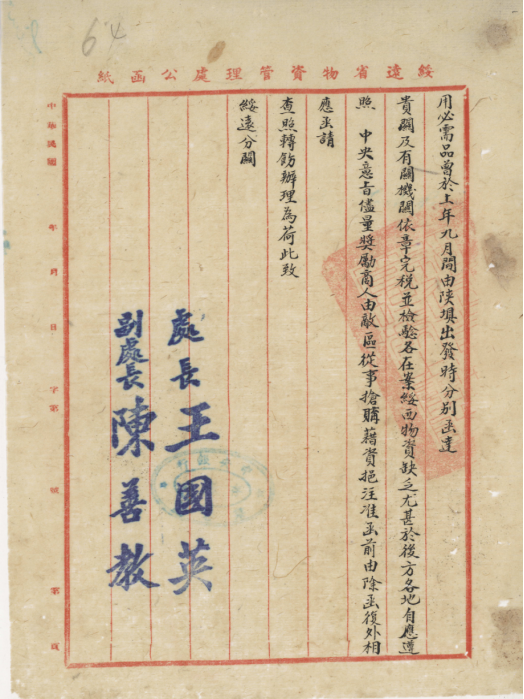 64
綏遠省物資管理處公函紙
用必需品曾於上年九月間由陝壩出發時分別函達
貴關及有關機關依章完稅並檢驗各在案綏西物資缺乏尤甚於後方各地自應遵
照 中央意旨儘量獎勵商人由敵區從事搶購藉資挹注准函前由除函復外相
應函請
查照轉飭辦理為荷此致
綏遠分關
處長 王國英
副處長 陳善教
中華民國 年 月 日 字第 號 第 頁